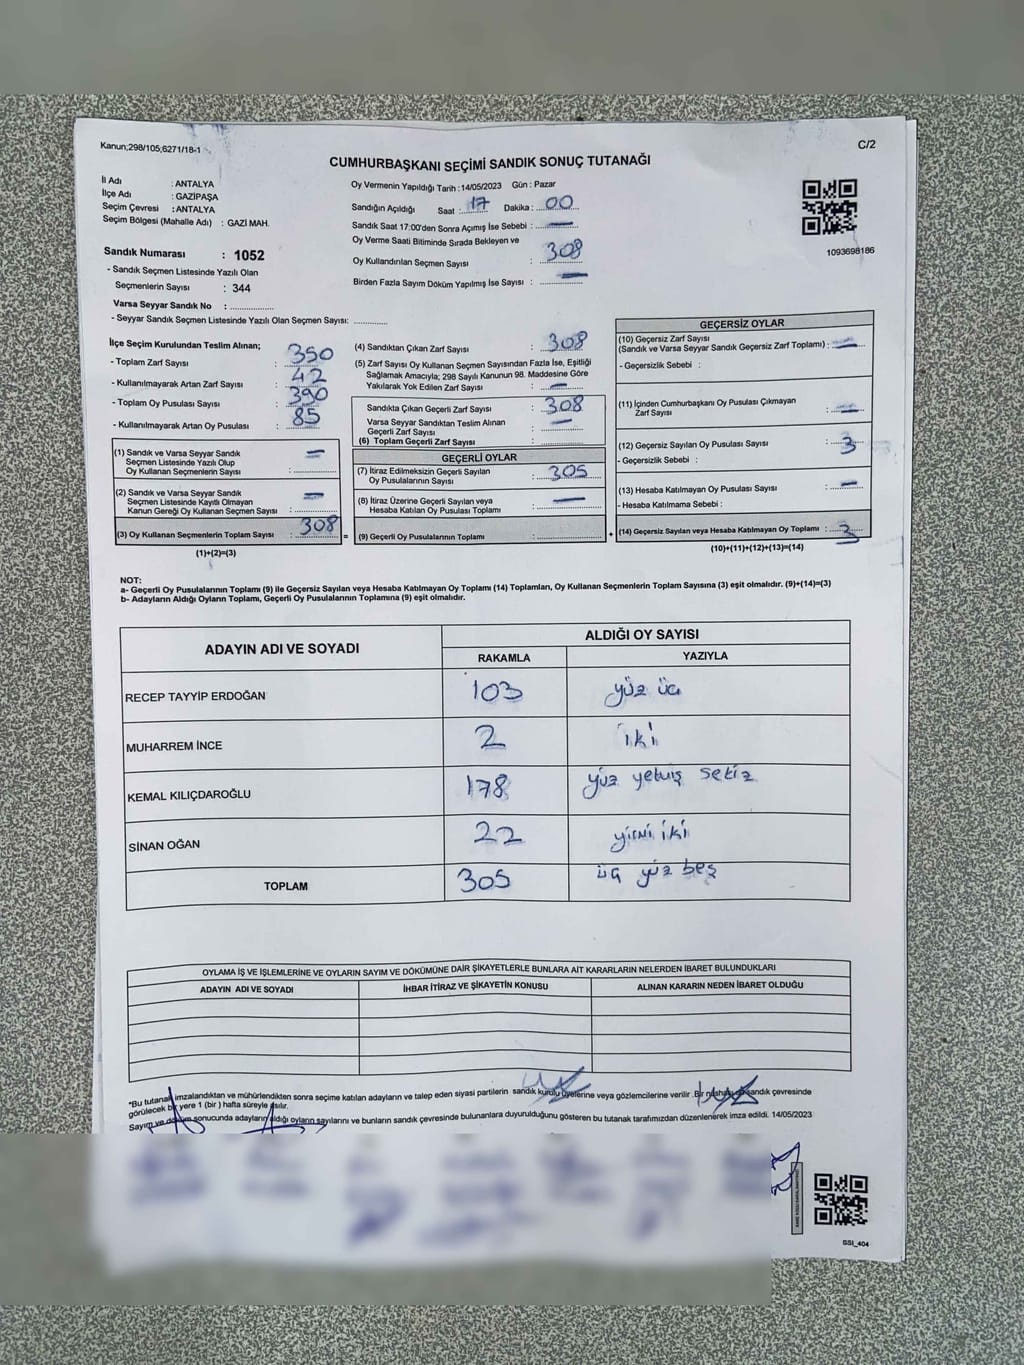 Kanun;298/105;6271/18-1
C/2
CUMHURBAŞKANI SEÇİMİ SANDIK SONUÇ TUTANAĞI
İl Adı : ANTALYA
İlçe Adı : GAZİPAŞA
Seçim Çevresi : ANTALYA
Seçim Bölgesi (Mahalle Adı) : GAZİ MAH.
Sandık Numarası : 1052
- Sandık Seçmen Listesinde Yazılı Olan
Seçmenlerin Sayısı : 344
Varsa Seyyar Sandık No :
- Seyyar Sandık Seçmen Listesinde Yazılı Olan Seçmen Sayısı:
Oy Vermenin Yapıldığı Tarih : 14/05/2023 Gün : Pazar
Sandığın Açıldığı Saat : 17 Dakika : 00
Sandık Saat 17:00'den Sonra Açımış İse Sebebi : —
Oy Verme Saati Bitiminde Sırada Bekleyen ve
Oy Kullandırılan Seçmen Sayısı : 308
Birden Fazla Sayım Döküm Yapılmış İse Sayısı : —
1093698186
İlçe Seçim Kurulundan Teslim Alınan;
- Toplam Zarf Sayısı : 350
- Kullanılmayarak Artan Zarf Sayısı : 42
- Toplam Oy Pusulası Sayısı : 390
- Kullanılmayarak Artan Oy Pusulası : 85
(1) Sandık ve Varsa Seyyar Sandık
Seçmen Listesinde Yazılı Olup
Oy Kullanan Seçmenlerin Sayısı : —
(2) Sandık ve Varsa Seyyar Sandık
Seçmen Listesinde Kayıtlı Olmayan
Kanun Gereği Oy Kullanan Seçmen Sayısı : —
(3) Oy Kullanan Seçmenlerin Toplam Sayısı : 308
(1)+(2)=(3)
(4) Sandıktan Çıkan Zarf Sayısı : 308
(5) Zarf Sayısı Oy Kullanan Seçmen Sayısından Fazla İse, Eşitliği
Sağlamak Amacıyla; 298 Sayılı Kanunun 98. Maddesine Göre
Yakılarak Yok Edilen Zarf Sayısı : —
Sandıkta Çıkan Geçerli Zarf Sayısı : 308
Varsa Seyyar Sandıktan Teslim Alınan
Geçerli Zarf Sayısı : —
(6) Toplam Geçerli Zarf Sayısı :
GEÇERLİ OYLAR
(7) İtiraz Edilmeksizin Geçerli Sayılan
Oy Pusulalarının Sayısı : 305
(8) İtiraz Üzerine Geçerli Sayılan veya
Hesaba Katılan Oy Pusulası Toplamı : —
= (9) Geçerli Oy Pusulalarının Toplamı : +
GEÇERSİZ OYLAR
(10) Geçersiz Zarf Sayısı
(Sandık ve Varsa Seyyar Sandık Geçersiz Zarf Toplamı) : —
- Geçersizlik Sebebi :
(11) İçinden Cumhurbaşkanı Oy Pusulası Çıkmayan
Zarf Sayısı : —
(12) Geçersiz Sayılan Oy Pusulası Sayısı : 3
- Geçersizlik Sebebi :
(13) Hesaba Katılmayan Oy Pusulası Sayısı : —
- Hesaba Katılmama Sebebi :
(14) Geçersiz Sayılan veya Hesaba Katılmayan Oy Toplamı : 3
(10)+(11)+(12)+(13)=(14)
NOT:
a- Geçerli Oy Pusulalarının Toplamı (9) ile Geçersiz Sayılan veya Hesaba Katılmayan Oy Toplamı (14) Toplamları, Oy Kullanan Seçmenlerin Toplam Sayısına (3) eşit olmalıdır. (9)+(14)=(3)
b- Adayların Aldığı Oyların Toplamı, Geçerli Oy Pusulalarının Toplamına (9) eşit olmalıdır.
ADAYIN ADI VE SOYADI
ALDIĞI OY SAYISI
RAKAMLA YAZIYLA
RECEP TAYYİP ERDOĞAN 103 yüz üç
MUHARREM İNCE 2 iki
KEMAL KILIÇDAROĞLU 178 yüz yetmiş sekiz
SİNAN OĞAN 22 yirmi iki
TOPLAM 305 üç yüz beş
OYLAMA İŞ VE İŞLEMLERİNE VE OYLARIN SAYIM VE DÖKÜMÜNE DAİR ŞİKAYETLERLE BUNLARA AİT KARARLARIN NELERDEN İBARET BULUNDUKLARI
ADAYIN ADI VE SOYADI İHBAR İTİRAZ VE ŞİKAYETİN KONUSU ALINAN KARARIN NEDEN İBARET OLDUĞU
*Bu tutanak imzalandıktan ve mühürlendikten sonra seçime katılan adayların ve talep eden siyasi partilerin sandık kurulu üyelerine veya gözlemcilerine verilir. Bir nüshası da sandık çevresinde
görülecek bir yere 1 (bir) hafta süreyle asılır.
Sayım ve döküm sonucunda adayların aldığı oyların sayılarını ve bunların sandık çevresinde bulunanlara duyurulduğunu gösteren bu tutanak tarafımızdan düzenlenerek imza edildi. 14/05/2023
SSİ_404